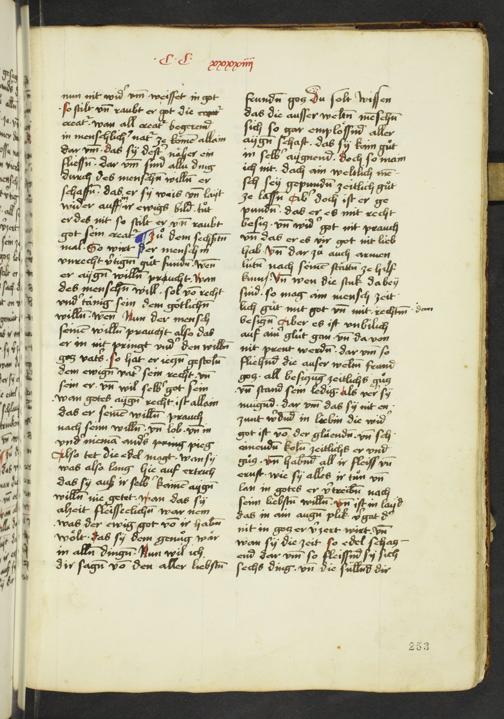 C C xxxxxiiij
nun nit wid' vm weisset in got
so stilt vn raubt er got die
creat wan all creat begerent
in menschlich' nat zu kome allain
dar vm das sy dest naher ein
fliessen dar vm sind allu ding
durch des menschen willen er
schaffen das er sy wis vn lait
wider auff in ewigs bild tut
er des nit so stilt er vn raubt
got sein creat Zu dem sechsten
mal So wirt der mensch in
unrecht gut funden wen
er aygen willen praucht wan
des menschen will sol vo recht
vnd' tanig sein dem gotlichen
willen wen Nun der mensch
seine willen praucht also das
er in nit pringt vnd' den willen
gotz vats so hat er iezen gestolen
dem ewigen vat' sein recht vn
sein er vn wil selb' got sein
wan gotes aygen recht ist allain
das er seine willen prauch
nach seim willen vn lob vn im
vnd niema ands prung pfleg
Also tet die edel magt wan sy
was also lang hie auf ertrich
das sy auf ir selb' kaine aygen
willen nie getet wan das sy
alzeit fleisseclichen war nem
was der ewig got vo ir haben
wolt das sy dem genug war
in allen dingen Nun wil ich
dir sagen vo den aller liebsten
freunden gotz Du solt wissen
das die ausser welten menschen
sich so gar emplossend aller
aygenschaft das sy kain gut
in selb' aygnend Doch so mam
ich nit dach ain weltlich me
sch sey gepunden zeitlich gut
ze lassen Ob' doch ist er ge
punden das er es mit recht
besicz vn wid' got nit prauch
vn das er es vur got nit lieb
hab vn dar zu auch armen
luten nach seine statten ze hilf
kum Vn wen die stuk da bey
sind so mag ain mensch zeit
lich gut mit got vn mit rechten dan
besiczen Aber es ist vnbilich
auf ain glut gan vn da von
nit prent werden dar vm so
fliehend die ausser welten freund
gotz all besiczug zeitlichs gutz
vn stand sein ledig als ver sy
mugend dar vm das sy nit en
zunt werdend in liebin die wid'
got ist vo der gluenden vn sch
einenden kolen zeitlichs er vnd
gutz vn habend all ir fleiss vn
ernst wie sy alles ir tun vn
lan in gotes er vertreiben nach
seim liebsten willen vn ist in layd
das in ain augen plik vgat d'
nit in gotz er verzert wirt vn
wan sy die zeit so edel schacz
end dar vm so fleissend sy sich
sechs ding vn die sullend dir
253